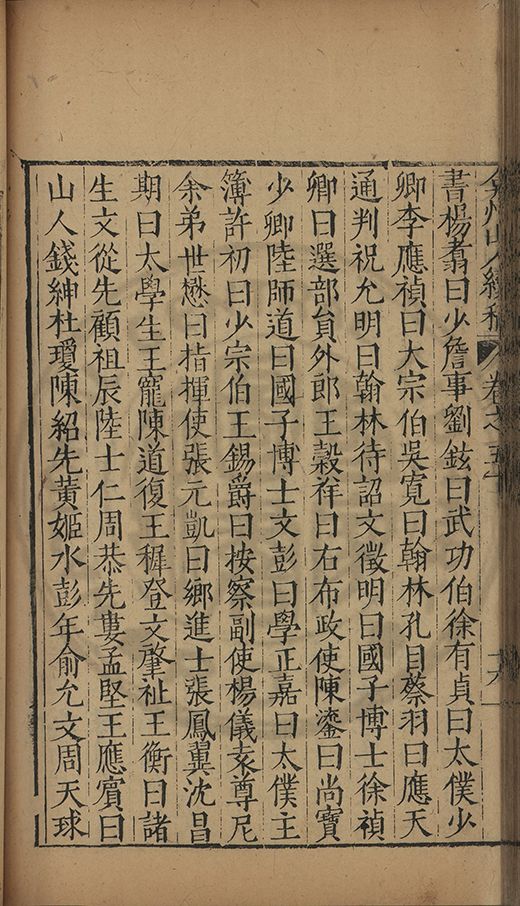 弇州山人續稿 卷之五十 十六
書楊翥曰少詹事劉鉉曰武功伯徐有貞曰太僕少
卿李應禎曰大宗伯吳寬曰翰林孔目蔡羽曰應天
通判祝允明曰翰林待詔文徵明曰國子博士徐禎
卿曰選部員外郎王穀祥曰右布政使陳鎏曰尚寶
少卿陸師道曰國子博士文彭曰學正嘉曰太僕主
簿許初曰少宗伯王錫爵曰按察副使楊儀袁尊尼
余弟世懋曰指揮使張元凱曰鄉進士張鳳翼沈昌
期曰太學生王寵陳道復王穉登文肇祉王衡曰諸
生文從先顧祖辰陸士仁周恭先婁孟堅王應賓曰
山人錢紳杜瓊陳紹先黃姬水彭年俞允文周天球